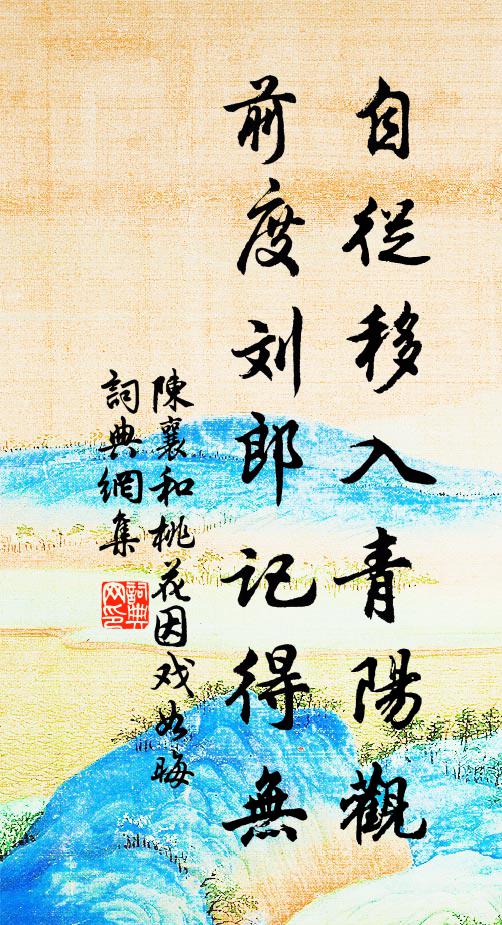 自從移入青陽觀
前度刘郎記得無
陳襄和桃花因戏如晦
詞典網集
詞典